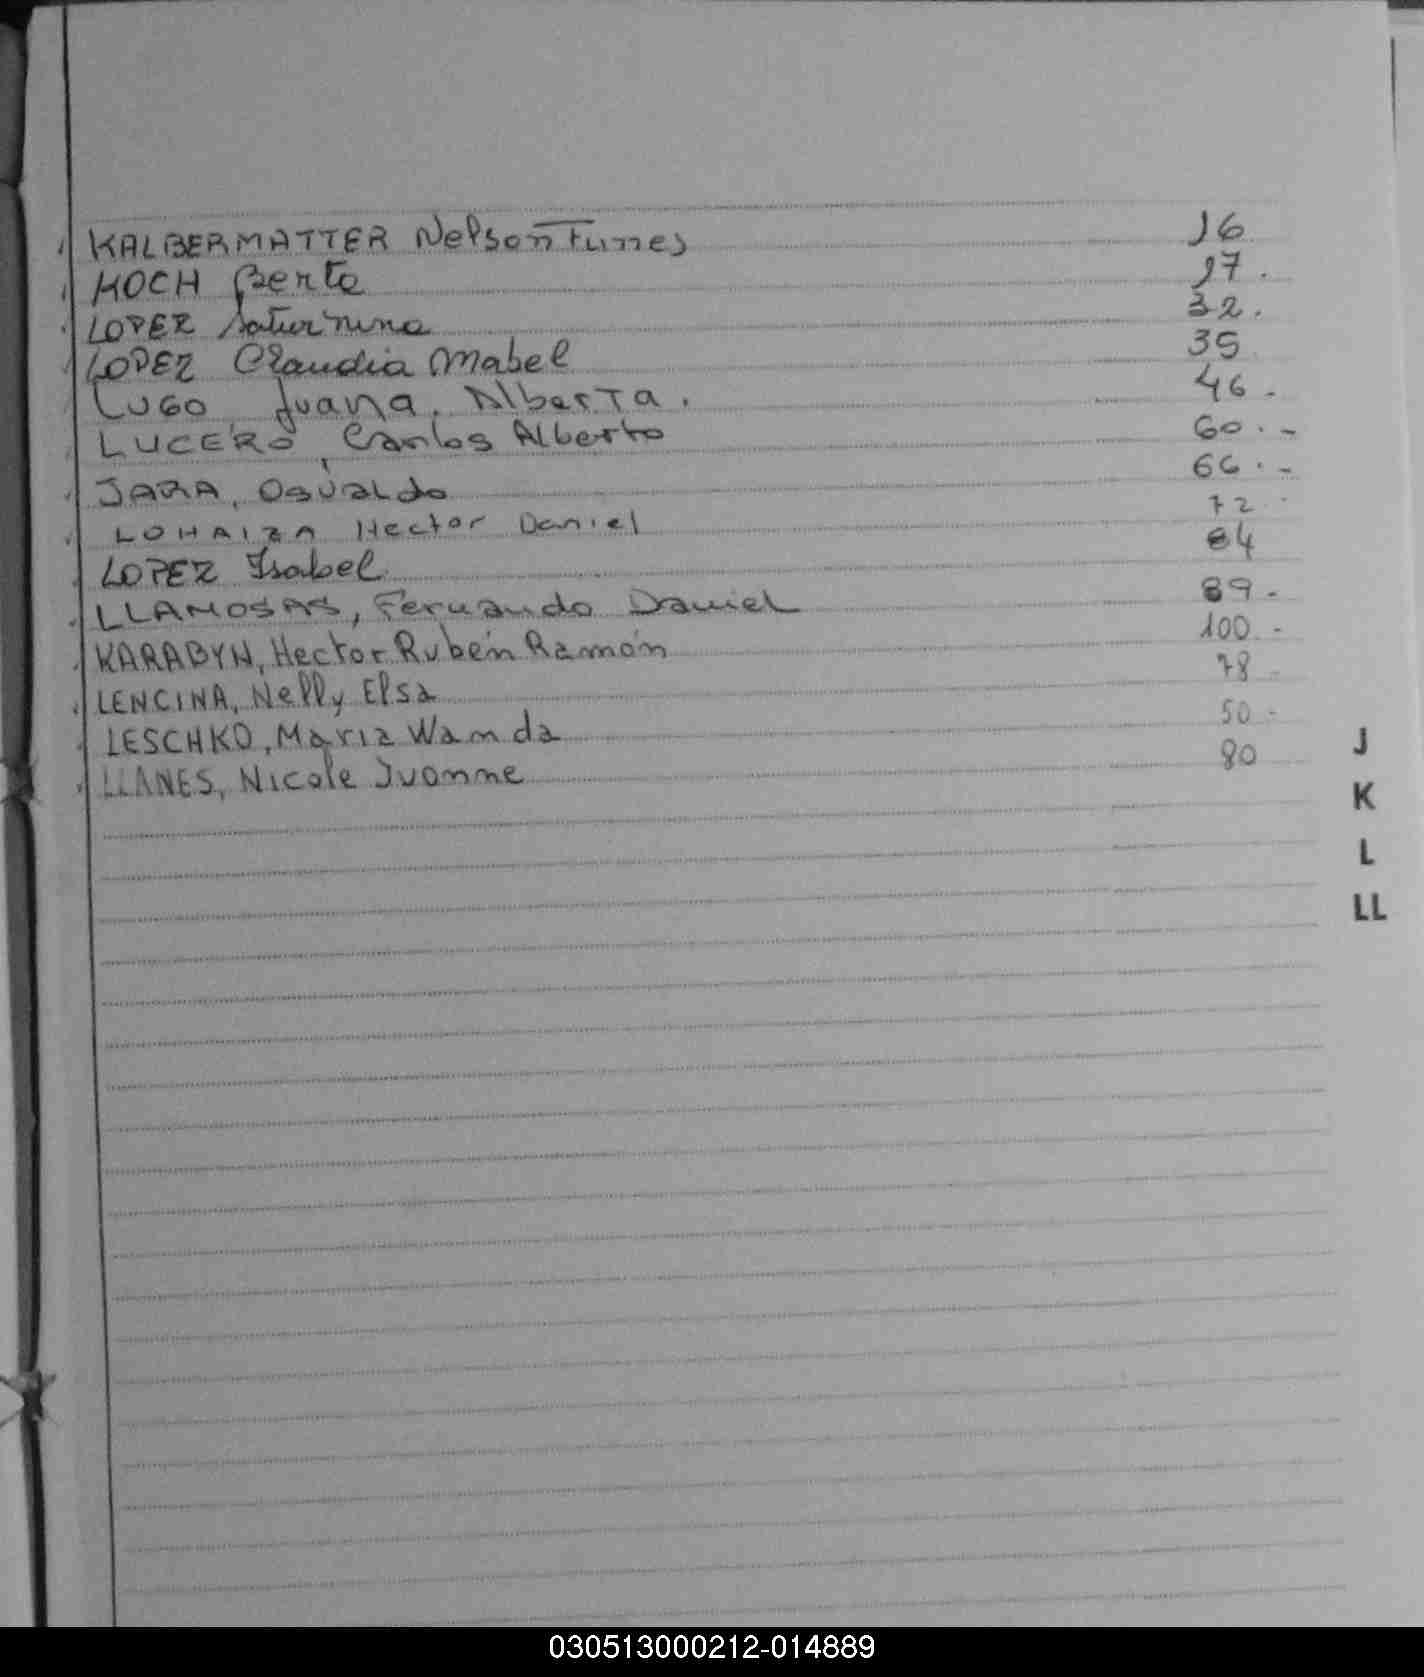 KALBERMATTER Nelson Funes 16
KOCH Berta 17.
LOPEZ Saturnina 32.
LOPEZ Claudia Mabel 35
LUGO Juana, Alberta. 46.
LUCERO, Carlos Alberto 60.-
JARA, Osvaldo 66.-
LOHAIZA Hector Daniel 72
LOPEZ Isabel 84
LLAMOSAS, Fernando Daniel 89.
KARABYN, Hector Rubén Ramón 100.-
LENCINA, Nelly Elsa 78
LESCHKO, Maria Wanda 50-
LLANES, Nicole Ivonne 80
J
K
L
LL
030513000212-014889